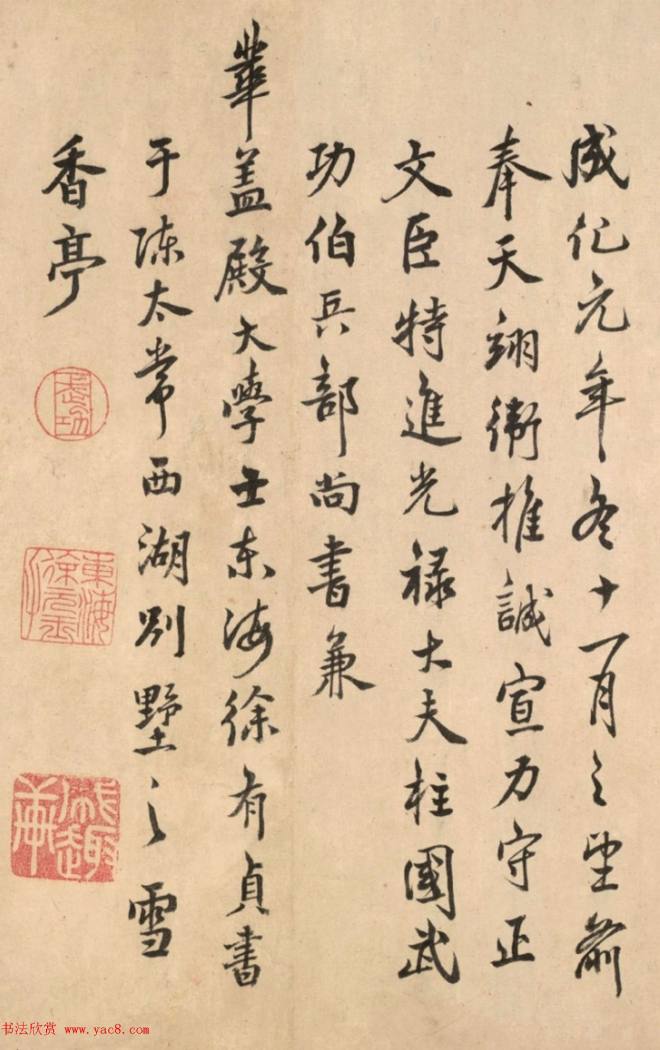 成化元年冬十一月之望前
奉天翊衛推誠宣力守正
文臣特進光祿大夫柱國武
功伯兵部尚書兼
華蓋殿大學士東海徐有貞書
于陳太常西湖別墅之雪
香亭
武功
東海徐元玉
書法欣赏 www.yac8.com